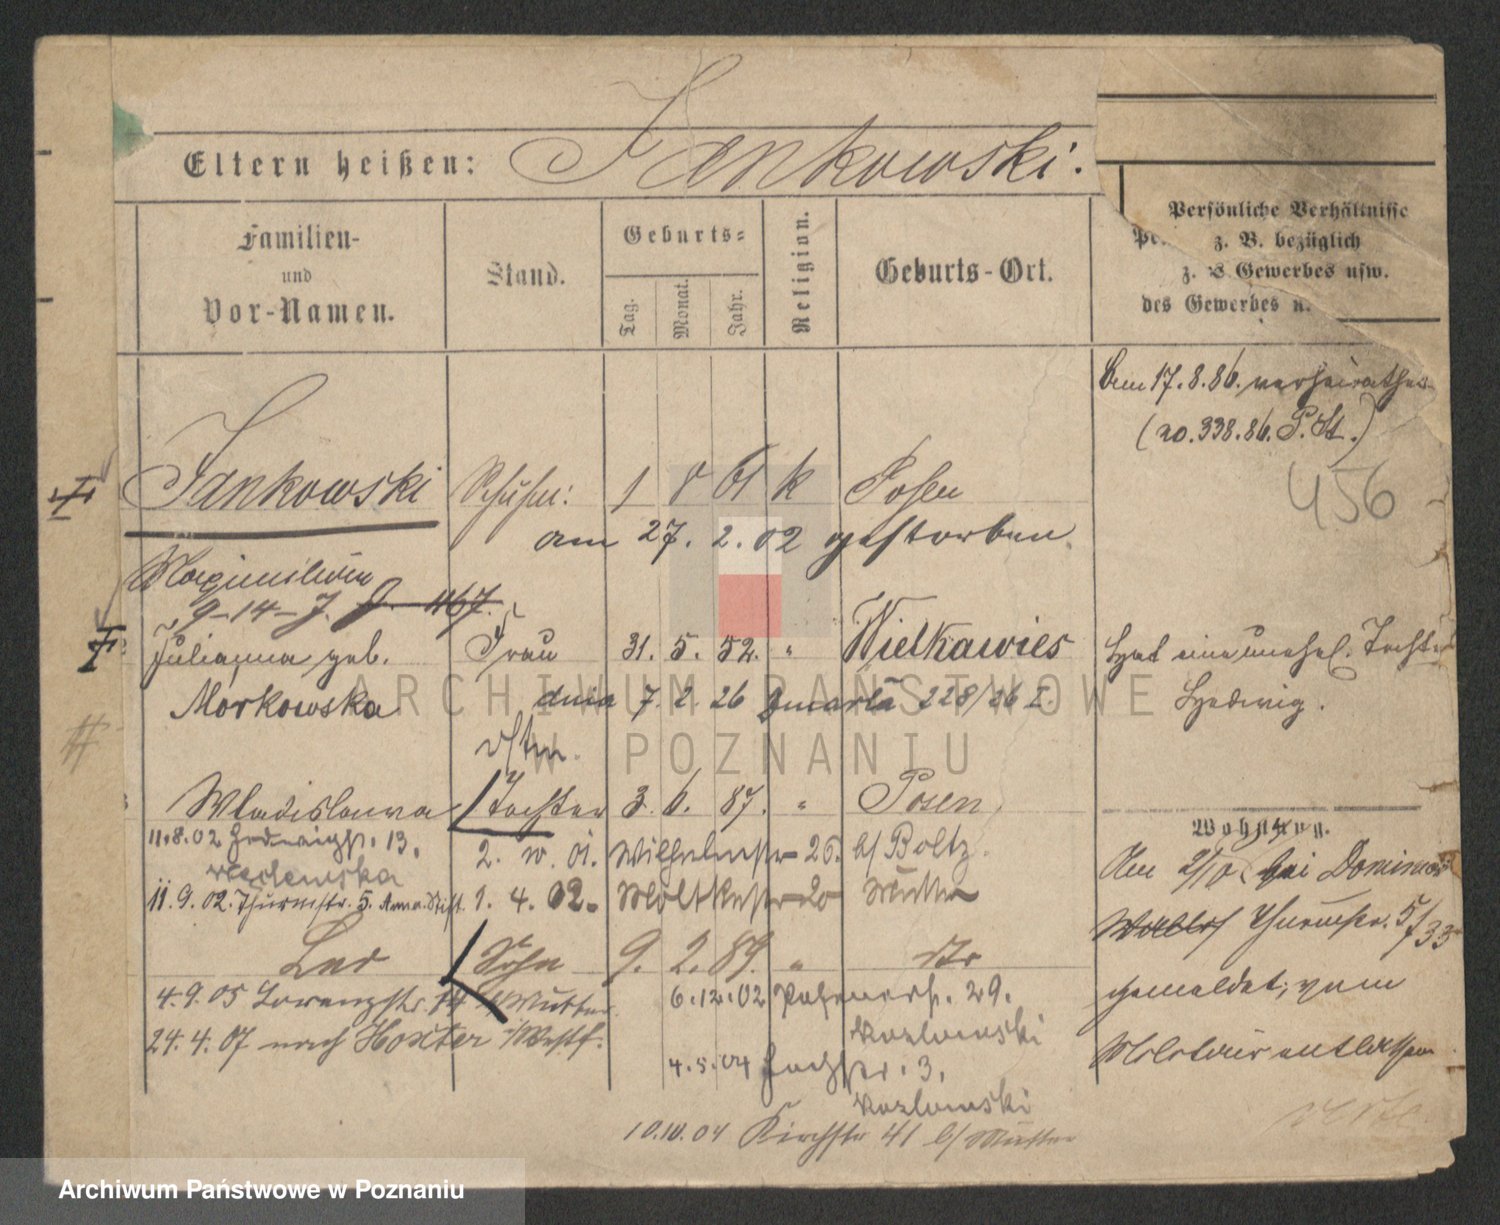 Eltern heißen: Jankowski.
Familien- und Vor-Namen.
Stand.
Geburts-
Tag. Monat. Jahr.
Religion.
Geburts-Ort.
Persönliche Verhältnisse
z. B. bezüglich
z. B. Gewerbes usw.
des Gewerbes u.
Am 17.8.86. verheirathet
(no. 338.86. P. St.)
456
Jankowski Schuhm: 1 8 61 k Posen
am 27. 2. 02 gestorben.
Maximilian
9-14-J. 467.
Julianna geb. Frau 31. 5. 52. " Wielkawies Hat eine unehel. Tochter
Morkowska dnia 7. 2. 26 zmarła 228/26 I. Hedwig.
Wladislawa Tochter 3. 6. 87. " Posen
Wohnung.
11.8.02 Hedwigstr. 13.
2. 10. 01. Wilhelmstr 26. b/ Boltz.
Am 2/10 bei
11.9.02. Thurmstr. 5. Anna Stift. 1. 4. 02. Moltkestr 20 Mutter
Thurmstr. 5/33
Leo Sohn 9. 2. 89. " dto
4.9.05 Lorenzstr. 14 b/Mutter 6.12.02 29.
gemeldet, vom
Kozlowski
24.4.07 nach Hoxter i/Westf.
Militair entlassen
4.5.04 3.
Kozlowski
10.10.04 Kirchstr 41 b/ Mutter
verte
ARCHIWUM PAŃSTWOWE
W POZNANIU
Archiwum Państwowe w Poznaniu